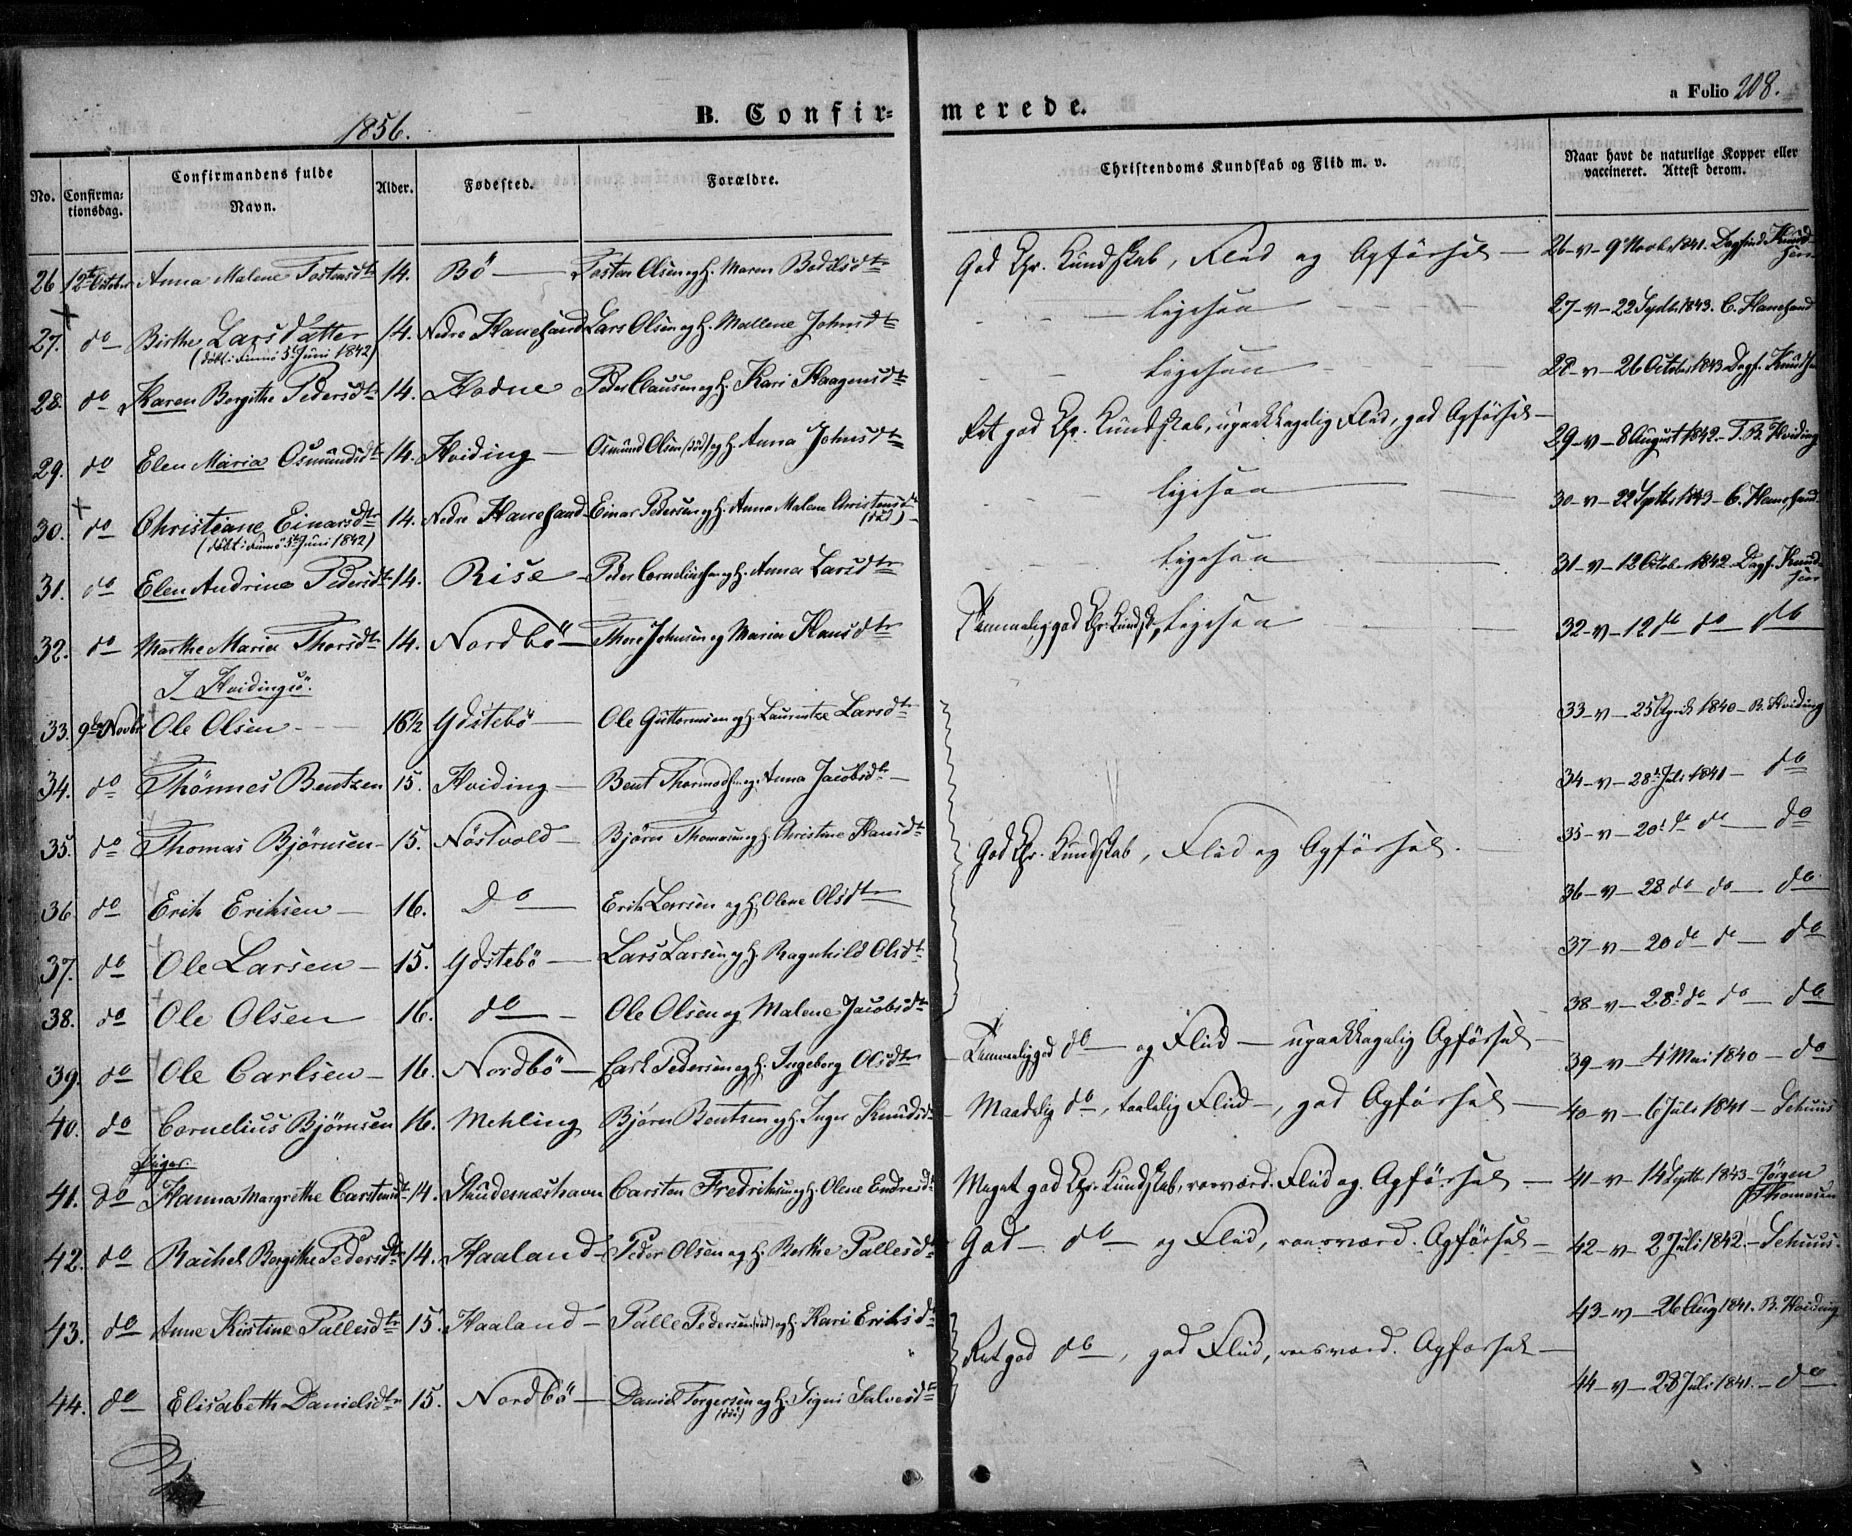 1856.
B. Confir-
merede.
a Folio 208.
No. Confirma-tionsdag. Confirmandens fulde Navn. Alder. Fødested. Forældre. Christendoms Kundskab og Flid m. v. Naar havt de naturlige Kopper eller vaccineret. Attest derom.
26 12te October Anna Malene Tostensdtr 14. Bö Tosten Olsen og H. Maren Bodilsdtr God Chr. Kundskab, Flid og Opförsel 26-v-9 Novbr 1841. Dagfind Knudsen
27. do Birthe Larsdatter 14. Nedre Hanesand Lars Olsen og H. Mallene Johnsdtr ligesaa 27-v-22 Septbr 1843. C. Hanesand
(döbt i Finnö 5te Juni 1842)
28. do Karen Borgithe Pedersdtr 14. Hodne Peder Clausen og H. Kari Haagensdtr ligesaa 28-v-26 October 1843 Dagf. Knudsen
29. do Elen Maria Osmundsdtr 14. Hviding Osmund Olsen (död) og H. Anna Johnsdtr Ret god Chr. Kundskab, upaaklagelig Flid, god Opförsel 29-v-8 August 1842 T. B. Hviding
30. do Christiane Einarsdtr 14. Nedre Hanesand Einar Pedersen og H. Anna Malene Christensdtr (död) ligesaa 30-v-22 Septbr 1843 C. Hanesand
(döbt i Finnö 5te Juni 1842)
31. do Elen Andrine Pedersdtr 14. Rise Peder Corneliussen og H. Anna Larsdtr ligesaa 31-v-12 Octob 1842 Dagf. Knudsen
32. do Marthe Maria Thorsdtr 14. Nordbö Thore Johnsen og Maria Hansdtr Temmelig god Chr. Kundsk., ligesaa 32-v-12 do do do
I Hvidingsö.
33. 9de Novbr Ole Olsen 16½ Ydstebö Ole Guttormsen og H. Laurentze Larsdtr 33-v-25 April 1840 B. Hviding
34. do Thönnes Bentzen 15. Hviding Bent Thormodsen og Anna Jacobsdtr 34-v-28 Juli 1841 do
35. do Thomas Björnsen 15. Nöstvold Björn Thomasen og H. Christine Hansdtr God Chr. Kundskab, Flid og Opförsel. 35-v-20 do do do
36 do Erik Eriksen 16. Do Erik Larsen og H. Olene Olsdtr 36-v-28 do do do
37. do Ole Larsen 15. Ydstebö Lars Larsen og H. Ragnhild Olsdtr 37-v-20 do do do
38. do Ole Olsen 16. do Ole Olsen og Malene Jacobsdtr 38-v-28 do do do
39. do Ole Carlsen 16. Nordbö Carl Pedersen og H. Ingeborg Olsdtr Temmelig god do og Flid upaaklagelig Opförsel 39-v-4 Mai 1840 do
40. do Cornelius Björnsen 16. Mehling Björn Bentsen og H. Inger Knudsdtr Maadelig do, taalelig Flid, god Opförsel 40-v-6 Juli 1841 Schuus
Piger.
41. do Hanna Margrethe Carstensdtr 14. Skudesnæshavn Carsten Fredriksen og H. Olene Endresdtr Meget god Chr. Kundskab, roesværd. Flid og Opförsel 41-v-14 Septbr 1843 Jörgen Thomasen
42. do Rachel Borgithe Pedersdtr 14. Haaland Peder Olsen og H. Berthe Pallesdtr God do og Flid, roesværd. Opförsel 42-v-2 Juli 1842. Schuus.
43. do Anne Kirstine Pallesdtr 15. Haaland Palle Pedersen (död) og H. Kari Eriksdtr 43-v-26 Aug 1841. B. Hviding
Ret god do, god Flid, roesværd. Opförsel
44. do Elisabeth Danielsdtr 15. Nordbö Daniel Torgersen (död) og H. Signi Salvesdtr 44-v-28 Juli 1841. do